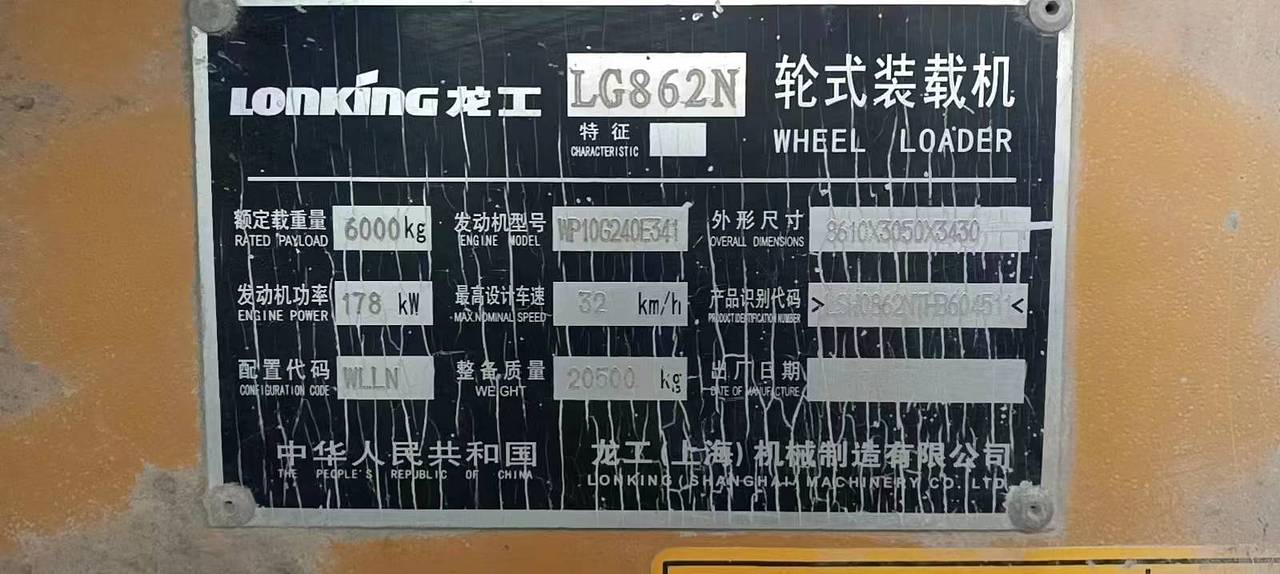 LONKING 龙工 LG862N 轮式装载机
特征
CHARACTERISTIC
WHEEL LOADER
额定载重量 6000kg 发动机型号 WP10G240E341 外形尺寸 8610X3050X3430
RATED PAYLOAD ENGINE MODEL OVERALL DIMENSIONS
发动机功率 178 kW 最高设计车速 32 km/h 产品识别代码
ENGINE POWER MAX.NOMINAL SPEED PRODUCT IDENTIFICATION NUMBER
配置代码 WLLN 整备质量 20500 kg 出厂日期
CONFIGURATION CODE WEIGHT DATE OF MANUFACTURE
中华人民共和国 龙工(上海)机械制造有限公司
THE PEOPLE'S REPUBLIC OF CHINA LONKING(SHANGHAI)MACHINERY CO.LTD.